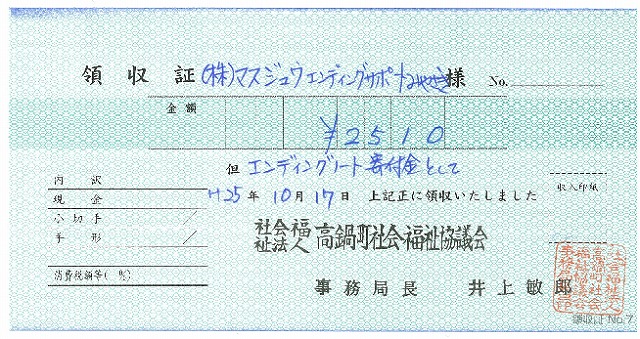 領収証 (株)マスジュウエンディングサポートみやざき様 No.
金額 ¥2510
但 エンディングノート寄付金として
内訳
現金
小切手
手形
消費税額等( %)
H25年10月17日 上記正に領収いたしました
収入印紙
社会福祉法人 高鍋町社会福祉協議会
事務局長 井上敏郎
領収証 No.7